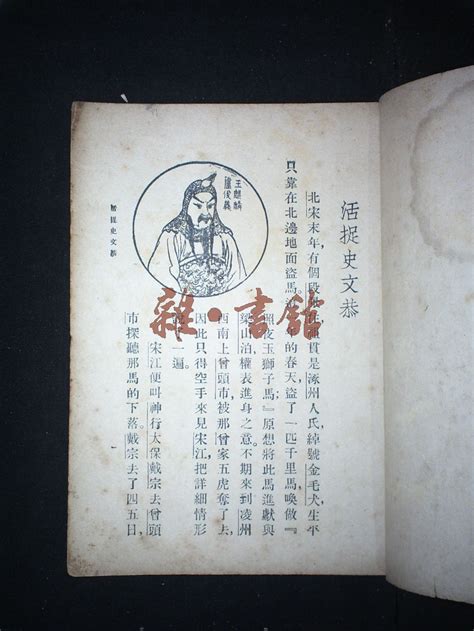 活捉史文恭
北宋末年，有個段 貫是涿州人氏，綽號金毛犬，生平
只靠在北邊地面盜馬。 年的春天，盜了一匹千里馬，喚做『
照夜玉獅子馬』，原想將此馬進獻與
梁山泊，權表進身之意。不期來到凌州
西南上曾頭市，被那曾家五虎奪了去，
因此只得空手來見宋江，把詳細情形
一遍。
宋江便叫神行太保戴宗去曾頭
市探聽那馬的下落。戴宗去了四五日，
玉麒麟
盧俊義
捉史文恭
一
雜·書館